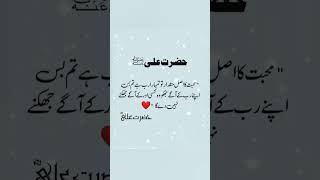 حضرت علیؓ
"محبت کا اصل حقدار تو تمہارا رب ہے تم بس
اپنے رب کے آگے جھکو وہ کسی اور کے آگے جھکنے
نہیں دے گا۔❤️
حضرت علیؓ